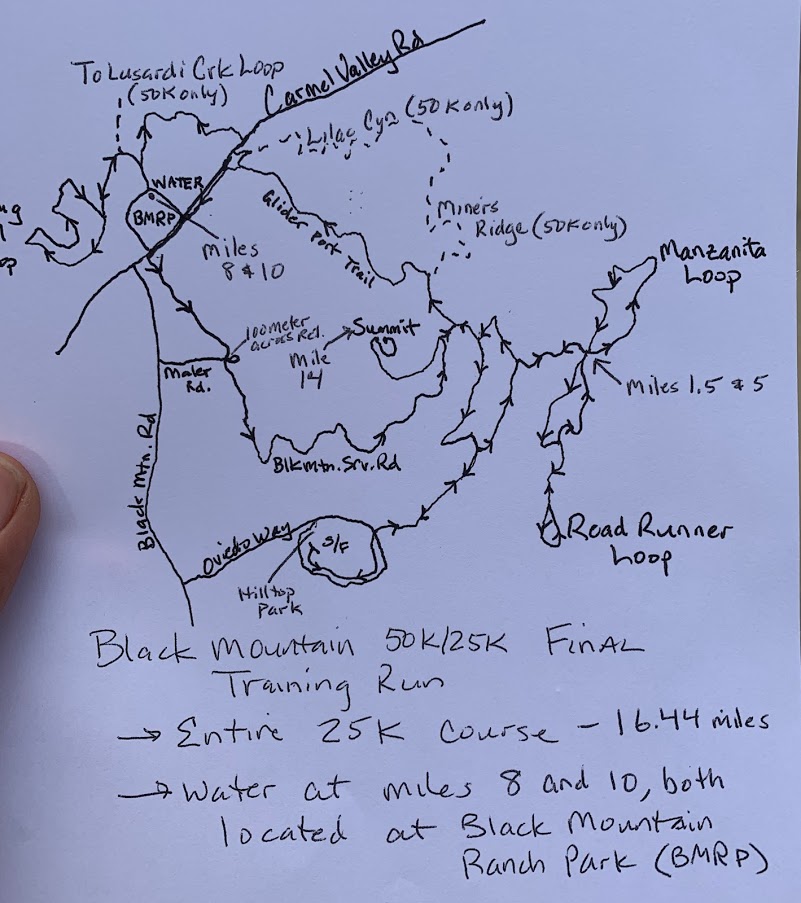 To Lusardi Crk Loop
(50K only)
Carmel Valley Rd
Lilac Cyn (50K only)
WATER
BMRP
Miles
8 & 10
Glider Port Trail
Miners
Ridge (50K only)
Manzanita
Loop
100 meter
across Rd.
Summit
Mile
14
Maler
Rd.
Miles 1.5 & 5
Blk Mtn. Srv. Rd
Black Mtn. Rd
Oviedo Way
S/F
Hilltop
Park
Road Runner
Loop
Black Mountain 50K/25K Final
Training Run
→ Entire 25K course - 16.44 miles
→ Water at miles 8 and 10, both
located at Black Mountain
Ranch Park (BMRP)